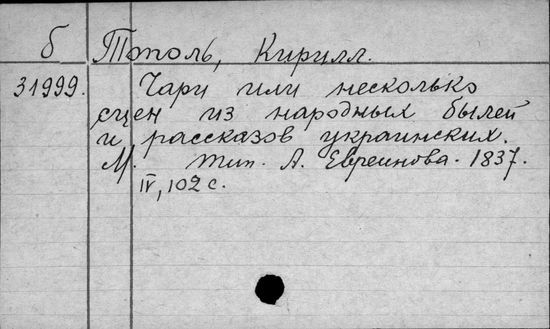 б Тополь, Кирилл.
31999. Чари или несколько
сцен из народных былей
и рассказов украинских.
М. тип. А. Евреинова. 1837.
IV, 102 с.